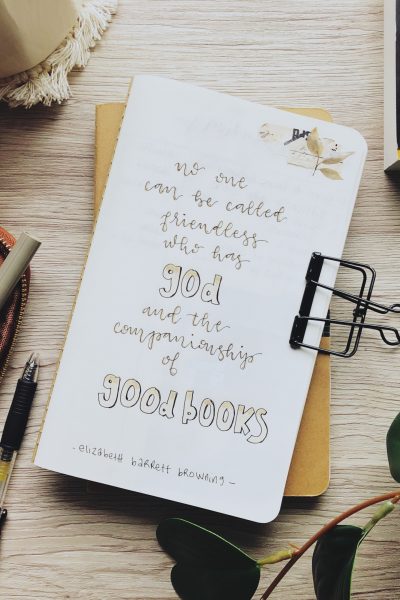 no one
can be called
friendless
who has
god
and the
companionship
of
good books
- elizabeth barrett browning -